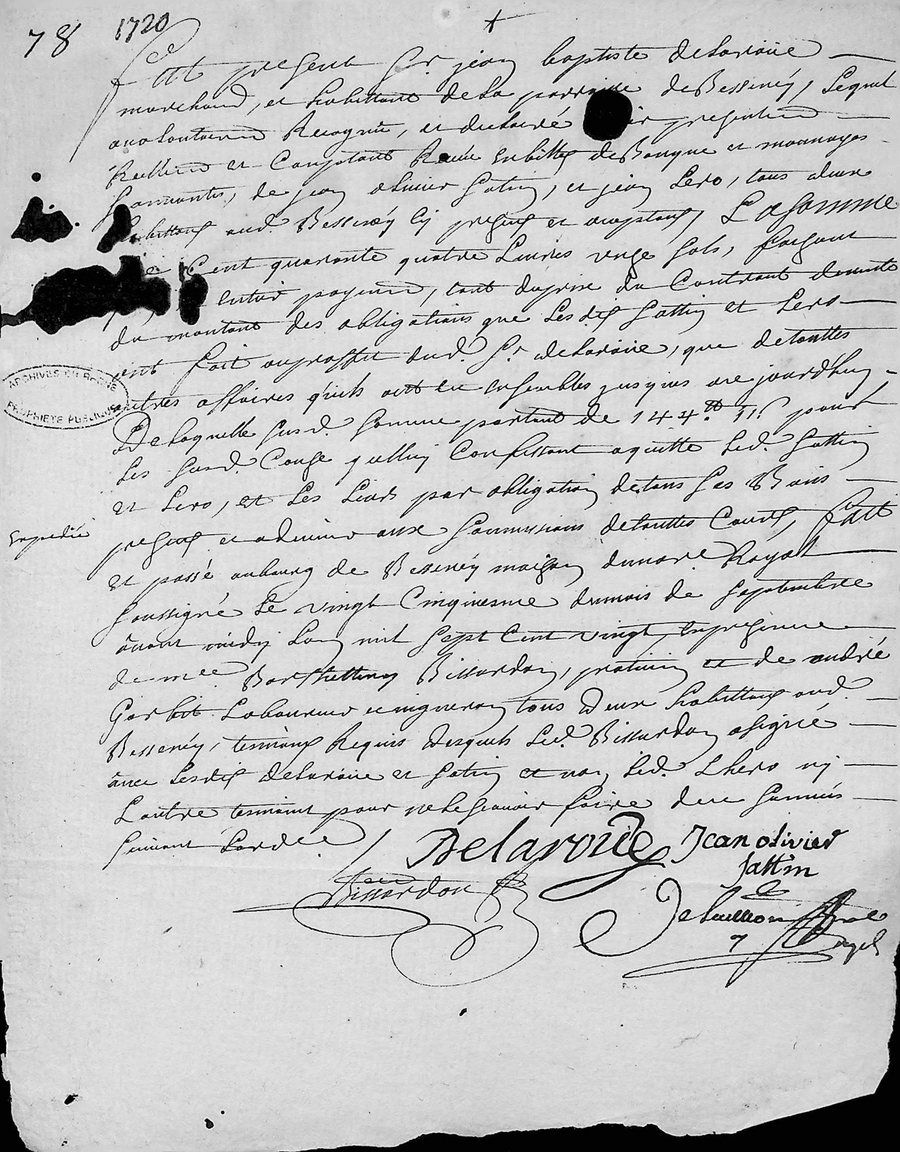 78 1720
fut present Sr jean baptiste delaroüe
marchand, et habittant de la parroisse de Bessenéy, Lequel
avolontairem Recognu, et declaré presentem
Reellem et Comptant Receu en billets de Banque et monnoyes
de jean olivier fattin, et jean Lero, tous deux
habittans aud. Bessenéy icy presens et acceptans, La somme
cent quarante quatre Livres unze sols, faisant
entier payem, tant du prix du Contract de
du montant des obligations que Lesdis fattin et Lero
ont fait auproffit dud Sr delaroüe, que de touttes
autres affaires quils ont eu ensembles jusques a ce jourd'huy
De laquelle susd. somme portant de 144tt 11s pour
Les susd. Cause jcelluy Confessant acquitte Led. fattin
et Lero, et Les Lieurs par obligation de tous ses Biens
presens et advenir aux soumissions de touttes Cours, fait
Expedié
et passé aubourg de Bessenéy maison du nore Royal
soussigné Le vingt Cinquiesme du mois de septembre
avant midy Lan mil sept cent vingt, en presence
de mee Barthellemy Bissardon, praticien et de andré
Garbit Laboureur et vigneron tous deux habittans aud.
Bessenéy, temoins Requis desquels Led. Bissardon a signé
avec Lesdis delaroüe et fatin et non Led. Lhero ny
Lautre temoint pour ne le scavoir faire de ce sommés
suivant Lorde
Delaroüe Jean olivier
fattin
Bissardon
ARCHIVES DU RHONE
PROPRIETE PUBLIQUE